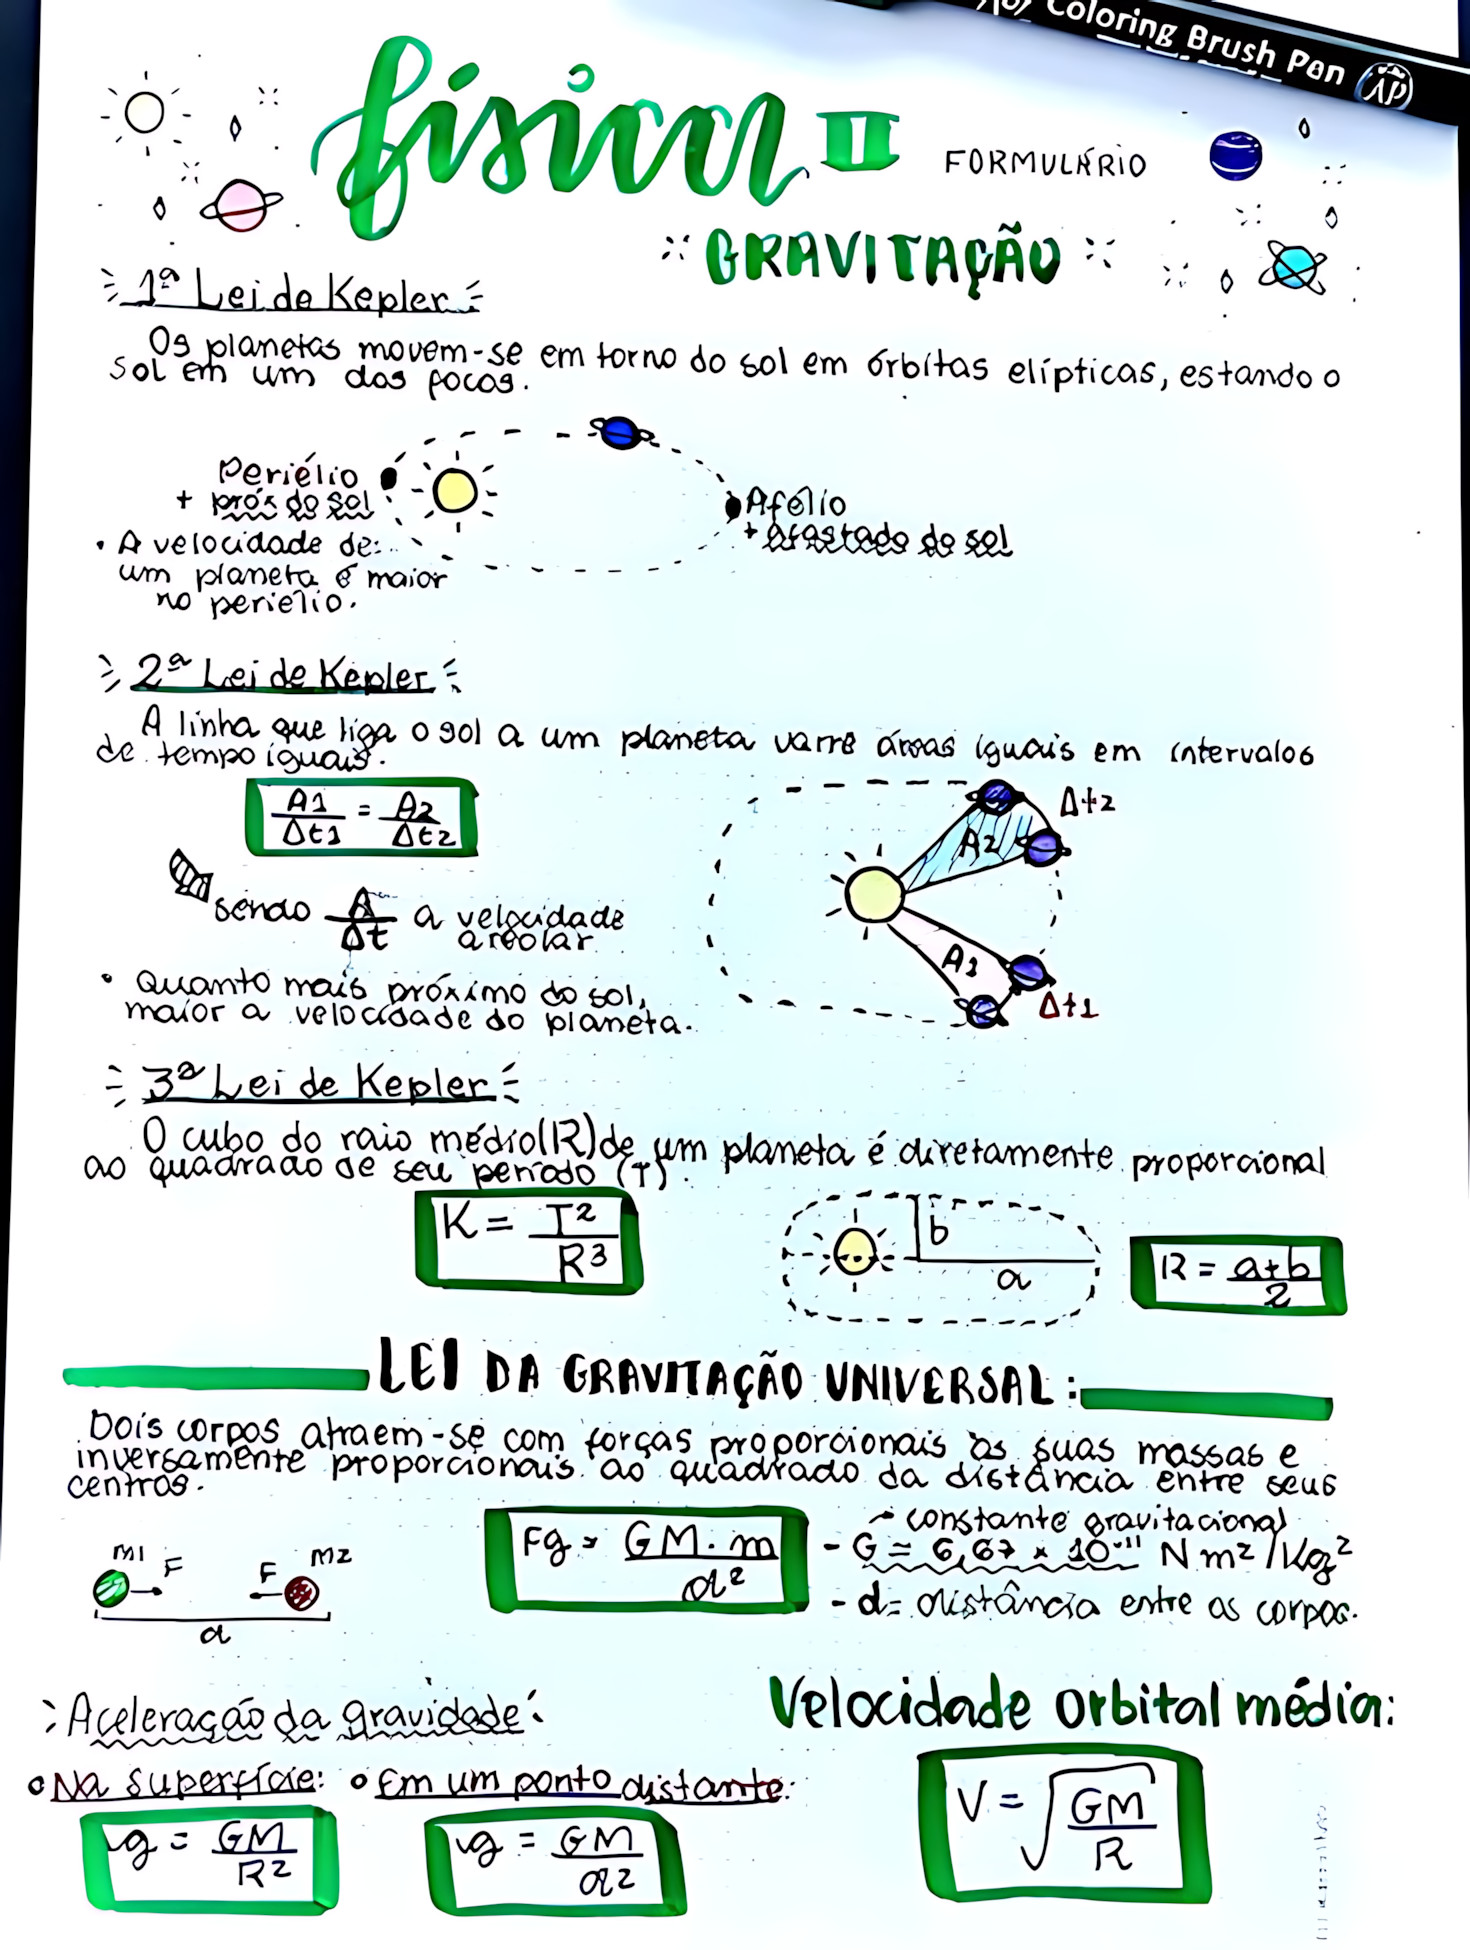 Coloring Brush Pen
AP
física II
FORMULÁRIO
GRAVITAÇÃO
1ª Lei de Kepler
Os planetas movem-se em torno do sol em órbitas elípticas, estando o
sol em um dos focos.
Periélio
+ próx do sol
Afélio
+ afastado do sol
• A velocidade de
um planeta é maior
no periélio.
2ª Lei de Kepler
A linha que liga o sol a um planeta varre áreas iguais em intervalos
de tempo iguais.
A1/Δt1 = A2/Δt2
Δt2
A2
sendo A/Δt a velocidade
areolar
A1
Δt1
• Quanto mais próximo do sol,
maior a velocidade do planeta.
3ª Lei de Kepler
O cubo do raio médio(R) de um planeta é diretamente proporcional
ao quadrado de seu período (T).
K = T²/R³
b
a
R = a+b/2
LEI DA GRAVITAÇÃO UNIVERSAL:
Dois corpos atraem-se com forças proporcionais às suas massas e
inversamente proporcionais ao quadrado da distância entre seus
centros.
m1 F F m2
d
Fg = GM.m/d²
→ constante gravitacional
- G = 6,67 × 10⁻¹¹ N m²/Kg²
- d = distância entre os corpos.
Aceleração da gravidade:
• Na superfície:
g = GM/R²
• Em um ponto distante:
g = GM/d²
Velocidade orbital média:
V = √GM/R